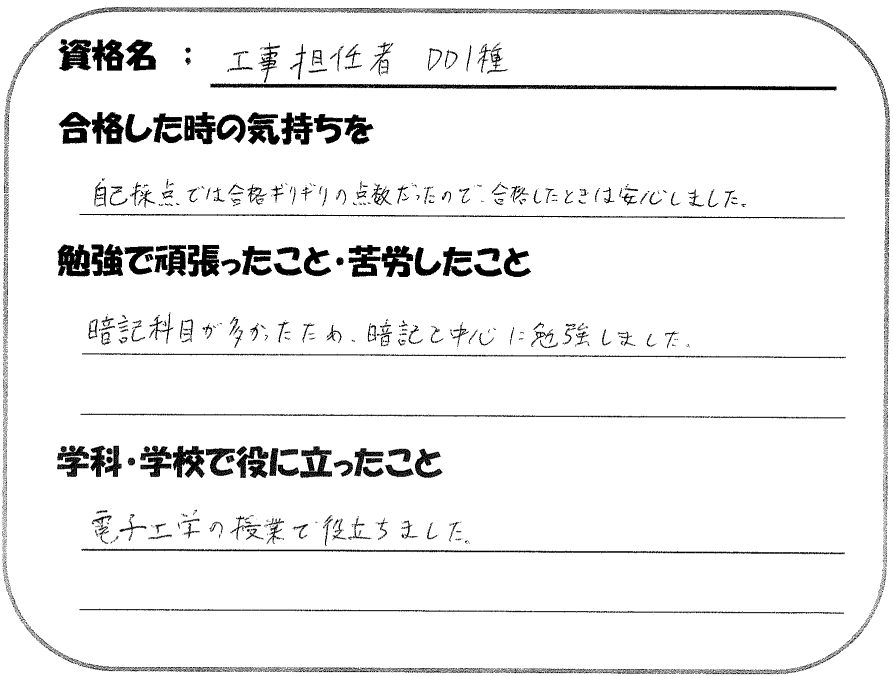 資格名 : 工事担任者 DD1種
合格した時の気持ちを
自己採点では合格ギリギリの点数だったので、合格したときは安心しました。
勉強で頑張ったこと・苦労したこと
暗記科目が多かったため、暗記を中心に勉強しました。
学科・学校で役に立ったこと
電子工学の授業で役立ちました。